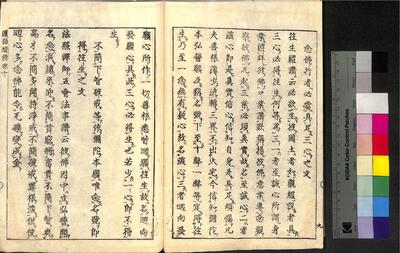 念佛行者必應具足三心之文
往生禮讚云必欲生彼國土者如觀經說者具
三心必得往生何等爲三一者至誠心所謂身
業禮拜彼佛口業讚歎稱揚彼佛意業專念觀
察彼佛凡起三業必須真實故名至誠心二者
深心即是真實信心信知自身是具足煩惱凡
夫善根薄少流轉三界不出火宅今信知彌陀
本弘誓願及稱名號下至十聲一聲等定得往
生乃至一念無有疑心故名深心三者迴向發
願心所作一切善根悉皆迴願往生故名迴向
發願心具此三心必得生也若少一心即不得
生
不簡下智破戒等依彌陀本願唯念名號即
得往生之文
法照禪師五會法事讚云彼佛因中立弘誓聞
名念我總來迎不簡貧窮將富貴不簡下智與
高才不簡多聞持淨戒不簡破戒罪根深但使
迴心多念佛能令瓦礫變成金
九